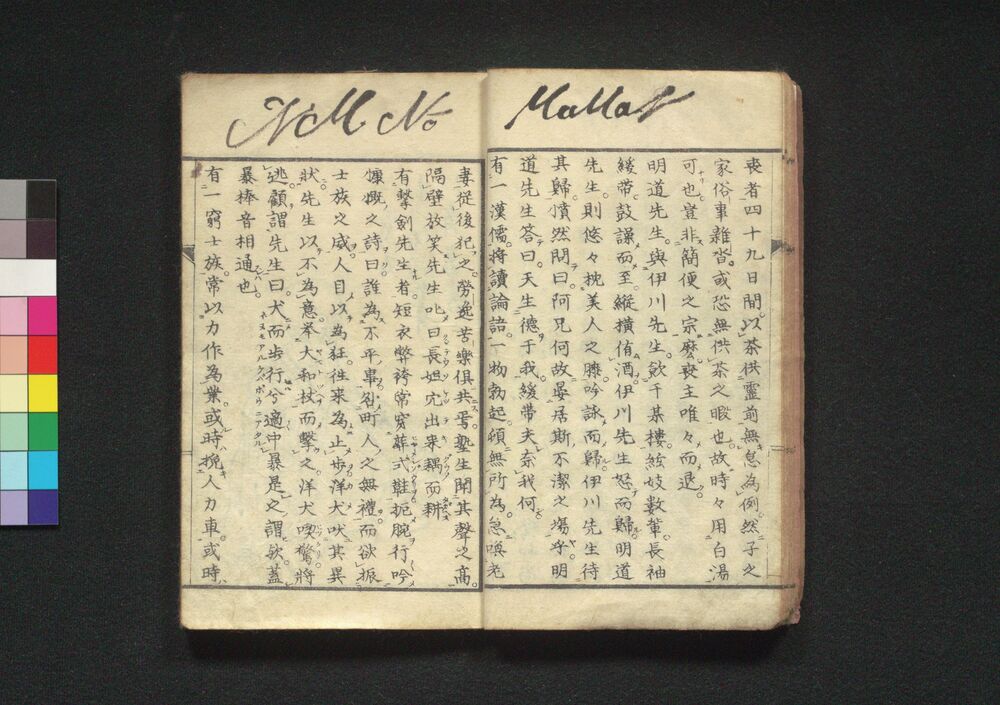 MaMaN
喪者四十九日間。以茶供靈前無怠為例。然子之
家俗事雜沓。或恐無供茶之暇也。故時々用白湯
可也。豈非簡便之宗麼。喪主唯々而退。
明道先生。與伊川先生。飲千某樓。絃妓數輩。長袖
緩帶。鼓譟而至。縱横侑酒。伊川先生怒而歸。明道
先生則悠々枕美人之膝。吟詠而歸。伊川先生待
其歸。憤然問曰。阿兄何故晏居斯不潔之場乎。明
道先生答曰。天生德于我。緩帶夫奈我何。
有一漢儒。將讀論語。一物勃起。頗無所為。急喚老
N.M. No
妻從後犯之。勞逸苦樂俱共焉。塾生聞其聲之高。
隔壁放笑。先生叱曰。長妲宄出。枲耦而耕
有擊劍先生者。短衣弊袴。常穿葬式鞋。扼腕行吟
慷慨之詩曰。誰為不平事。刟町人之無禮。而欲振
士族之威。人目以為狂。往來為止步。洋犬吠其異
狀。先生以不為意。擧大和杖而擊之。洋犬喫驚將
逃。顧謂先生曰。犬而步行兮適中暴是之謂欤。蓋
暴棒音相通也。イヌモアルクバボウニアタル
有一窮士族。常以力作為業。或時挽人力車。或時